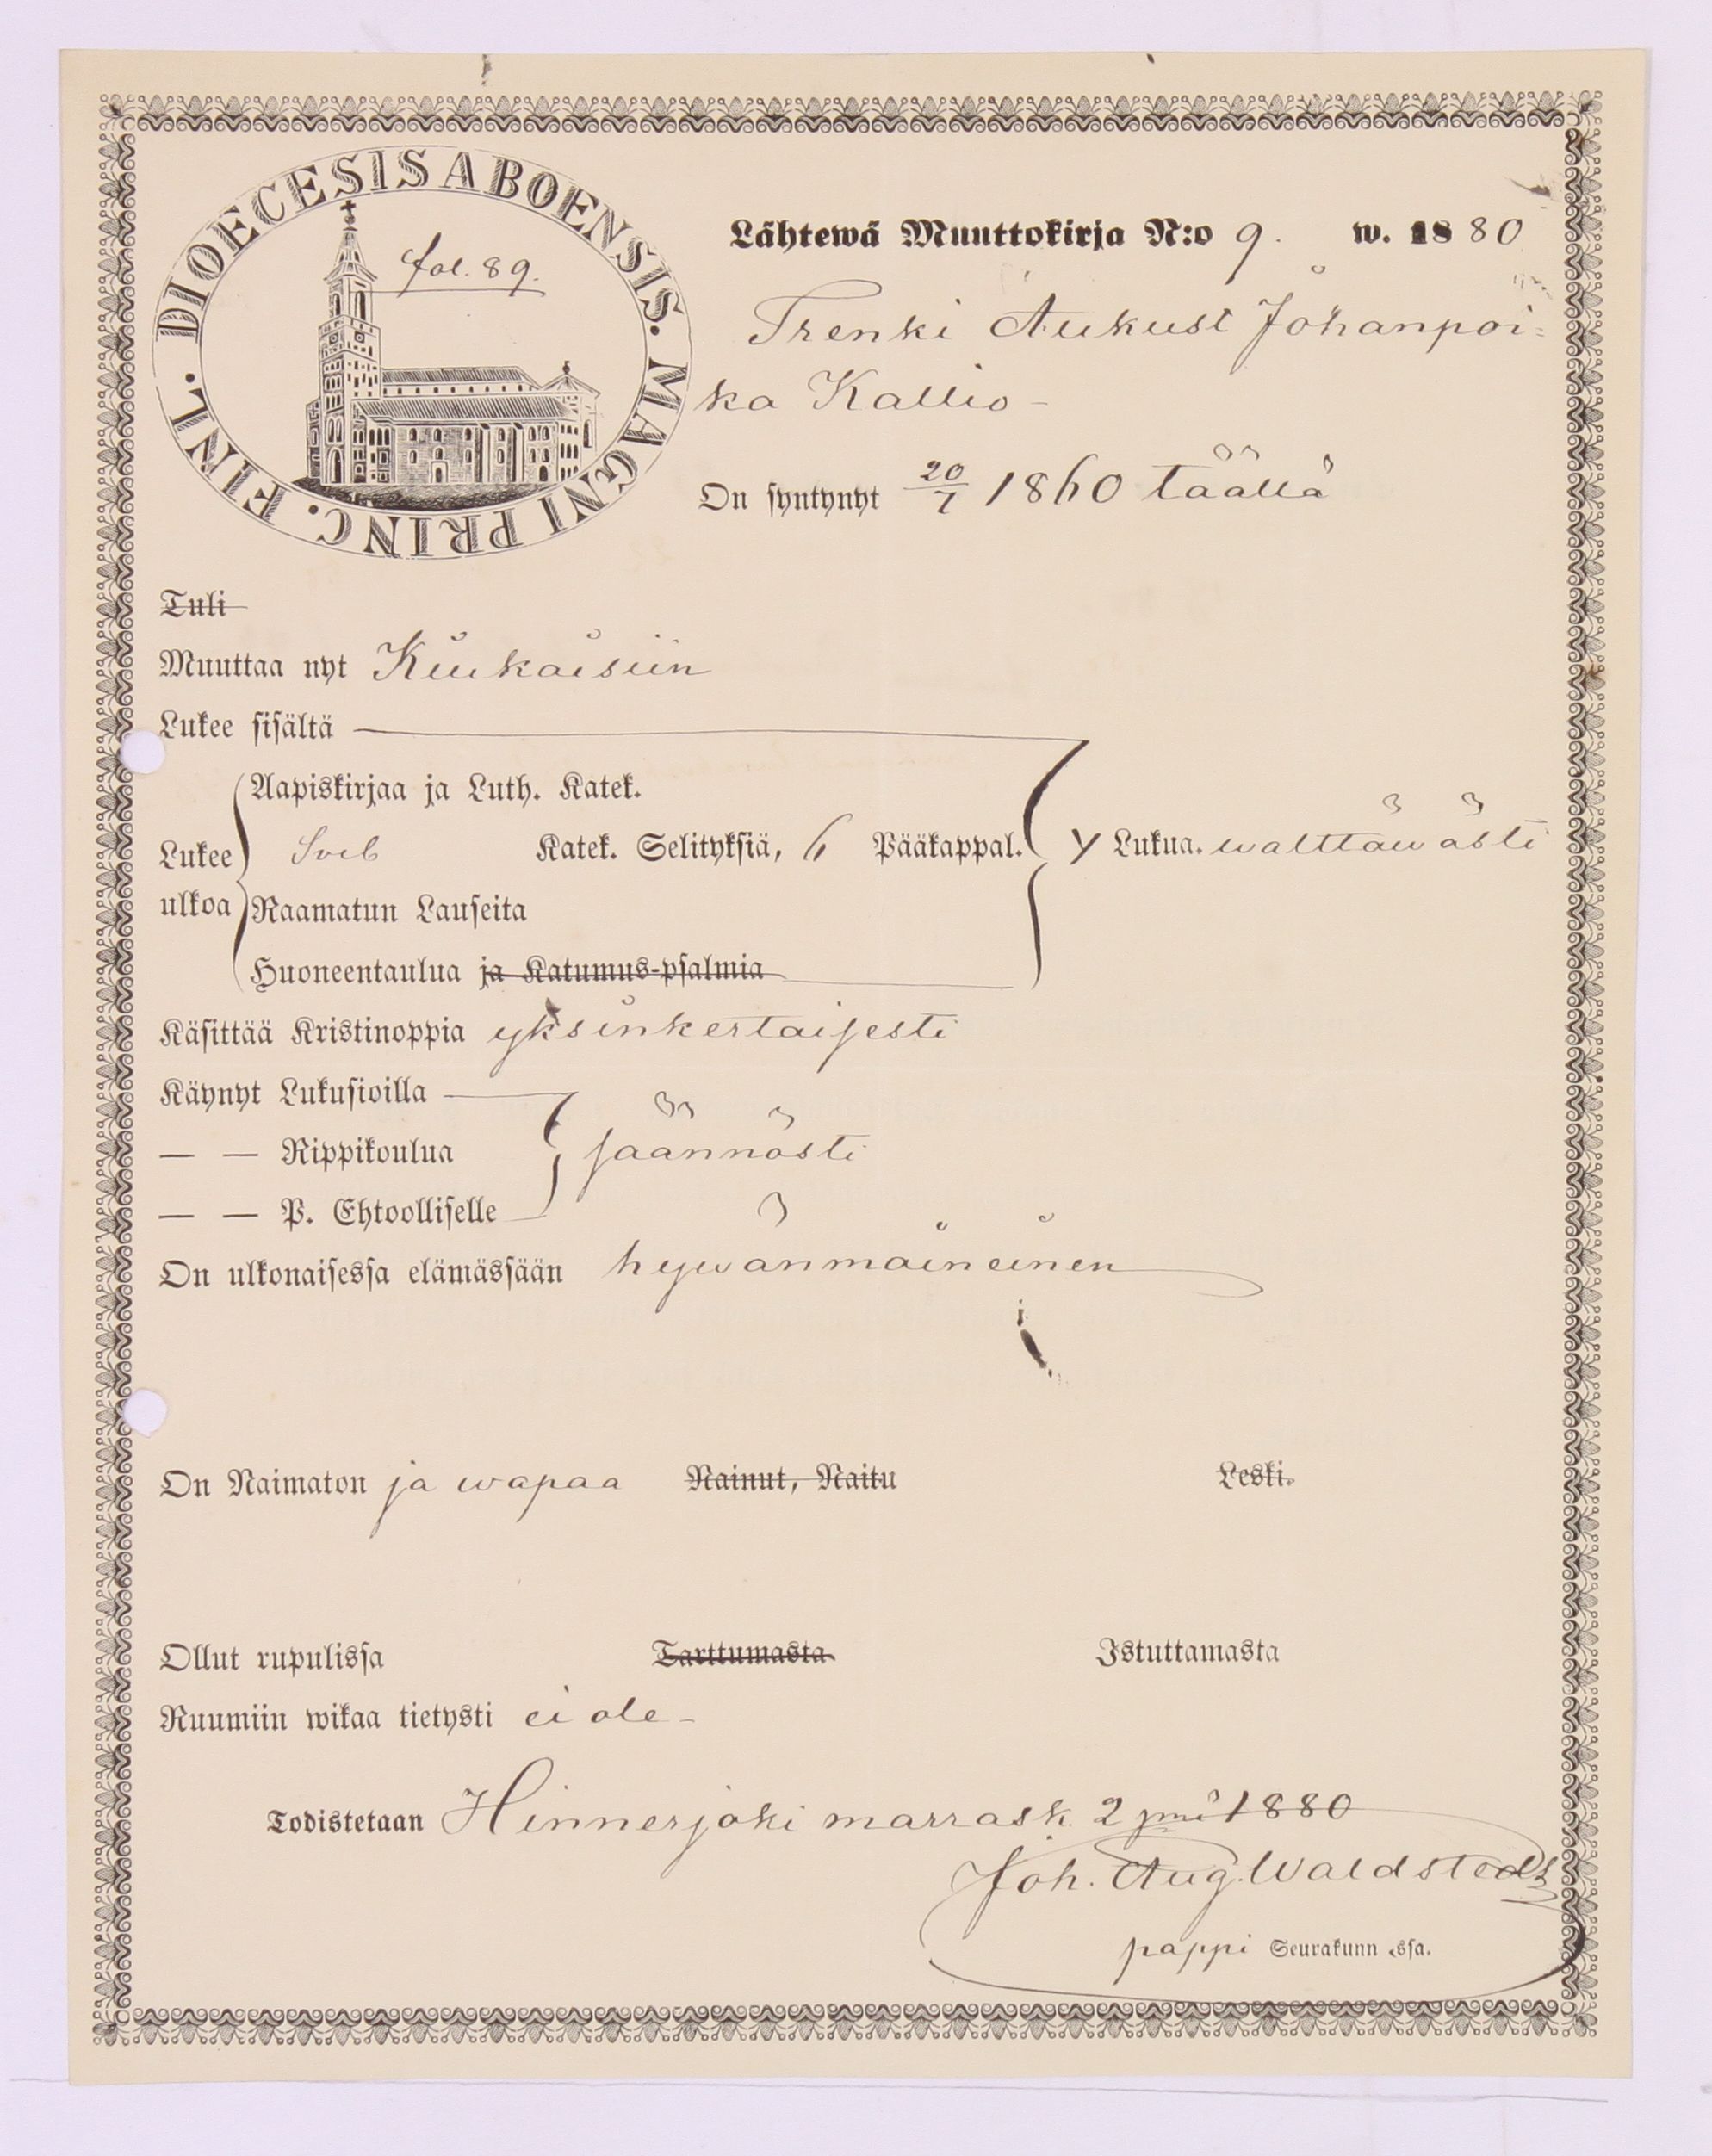 DIOECESIS ABOENSIS. MAGNI PRINC. FINL.
fol. 89.
Lähtewä Muuttokirja N:o 9. w. 1880
Trenki Aukust Johanpoi-
ka Kallio -
On syntynyt 20/7 1860 täällä
Tuli
Muuttaa nyt Kiukaisiin
Lukee sisältä
Aapiskirjaa ja Luth. Katek.
Lukee Sveb Katek. Selityksiä, 6 Pääkappal. Lukua. walttäwästi
ulkoa Raamatun Lauseita
Huoneentaulua ja Katumus-psalmia
Käsittää Kristinoppia yksinkertaisesti
Käynyt Lukusioilla
— — Rippikoulua säännösti
— — P. Ehtoolliselle
On ulkonaisessa elämässään hywänmaineinen
On Naimaton ja wapaa Nainut, Naitu Leski.
Ollut rupulissa Tarttumasta Istuttamasta
Ruumiin wikaa tietysti ei ole -
Todistetaan Hinnerjoki marrask. 2 pnä 1880
Joh. Aug. Waldstedt
pappi Seurakunn essa.